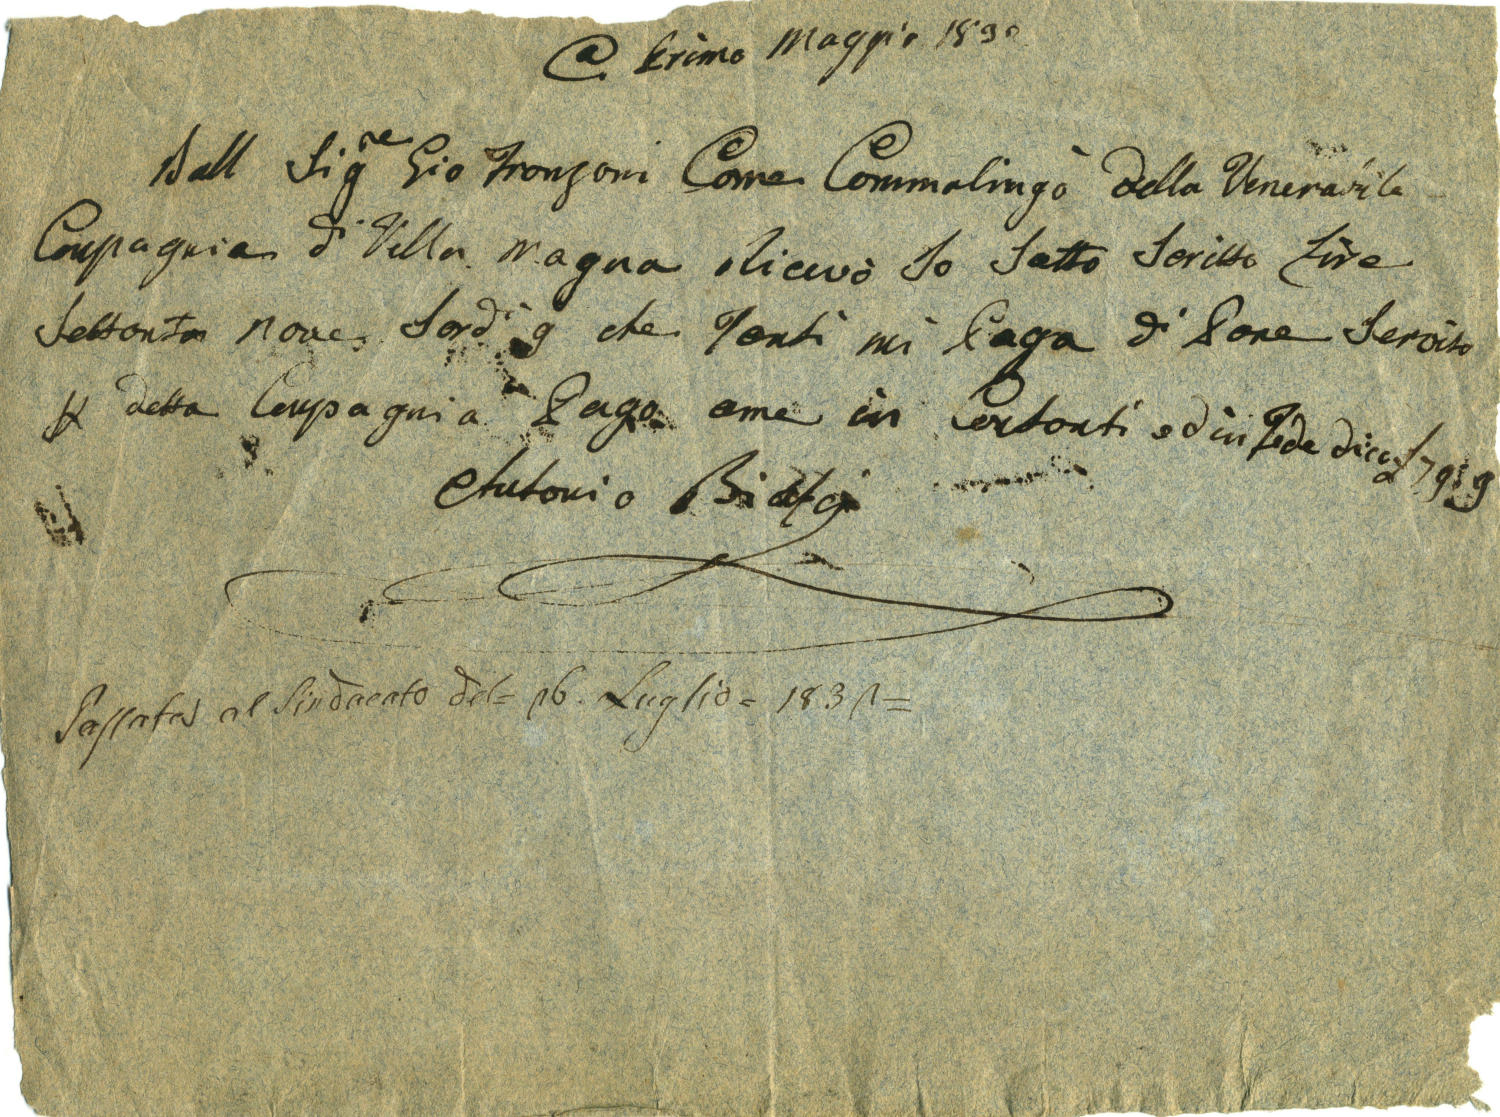 @ Primo Maggio 1830
Dall Sig.re Gio Fronzoni Come Cammalingo della Venerabile
Conpagnia di Villa Magna Ricevo Io Sotto Scritto Lire
Settonta nove Sordi 9 che Tonti mi Paga di Pane Servito
P detta Conpagnia Pago ame in Contonti ed in Fede dico £ 79:9
Antonio
Passata al Sindacato del= 16. Luglio = 1831=